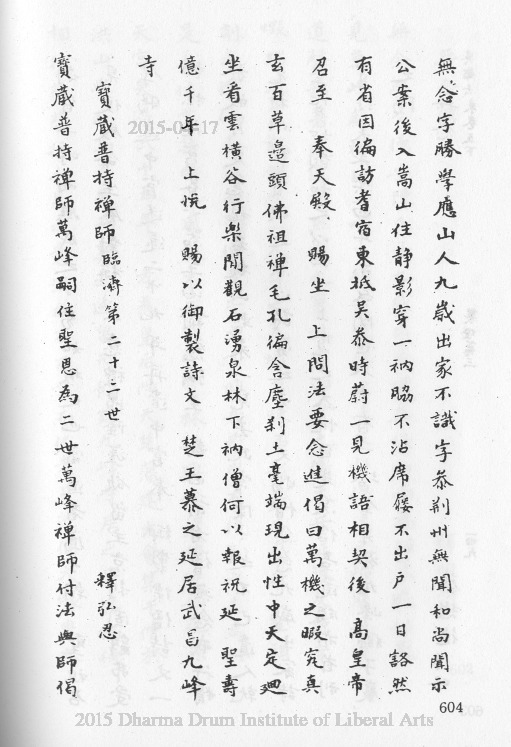 無念字勝學應山人九歲出家不識字叅荆州無聞和尚聞示
公案後入嵩山住静影穿一衲脇不沾席屨不出户一日豁然
有省因徧訪耆宿東抵吳叅時蔚一見機語相契後 高皇帝
召至 奉天殿 賜坐 上問法要念進偈曰萬機之暇究真
玄百草邉頭佛祖禅毛孔徧含塵刹土毫端現出性中天定廻
坐看雲橫谷行樂閒觀石湧泉林下衲僧何以報祝延 聖壽
億千年 上悦 賜以御製詩文 楚王慕之延居武昌九峰
寺
寳蔵普持禅師臨濟第二十二世 釋弘忍
寳蔵普持禅師萬峰嗣住聖恩為二世萬峰禅師付法與師偈
604
2015-04-17
2015 Dharma Drum Institute of Liberal Arts